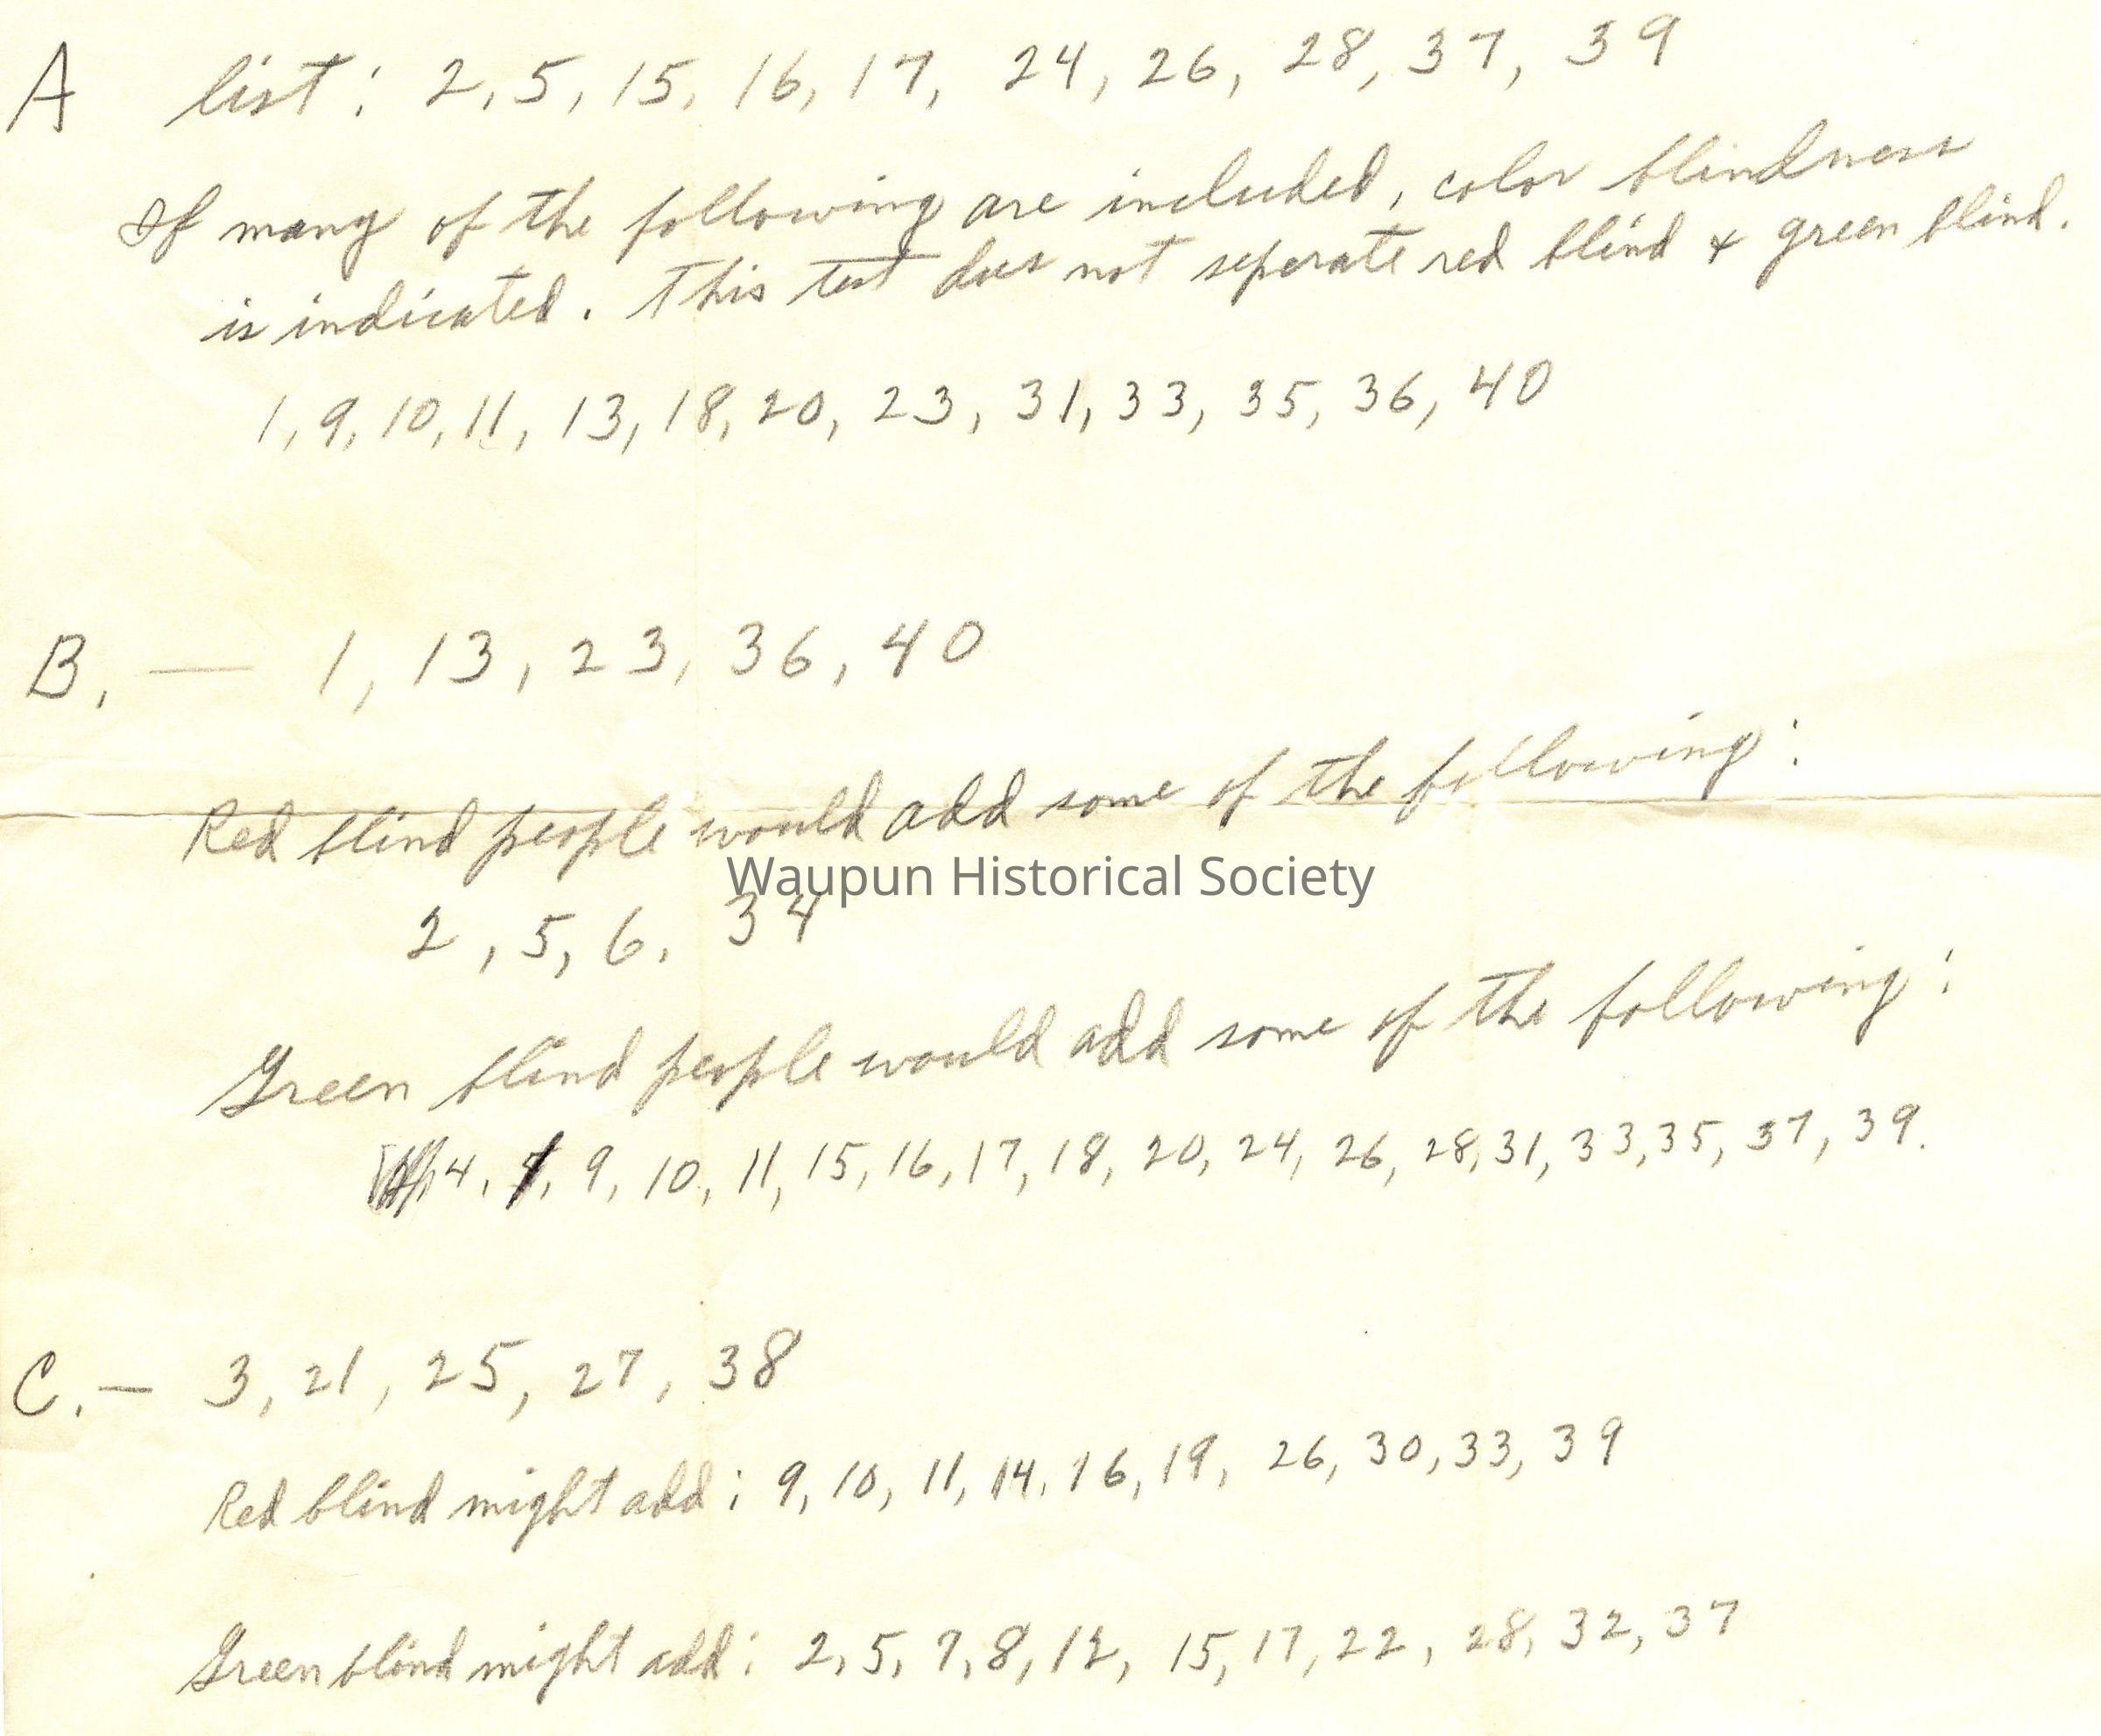 A list: 2, 5, 15, 16, 17, 24, 26, 28, 37, 39
If many of the following are included, color blindness
is indicated. This test does not seperate red blind & green blind.
1, 9, 10, 11, 13, 18, 20, 23, 31, 33, 35, 36, 40
B. — 1, 13, 23, 36, 40
Red blind people would add some of the following:
Waupun Historical Society
2, 5, 6, 34
Green blind people would add some of the following:
4, 9, 10, 11, 15, 16, 17, 18, 20, 24, 26, 28, 31, 33, 35, 37, 39.
C. — 3, 21, 25, 27, 38
Red blind might add: 9, 10, 11, 14, 16, 19, 26, 30, 33, 39
Green blind might add: 2, 5, 7, 8, 12, 15, 17, 22, 28, 32, 37